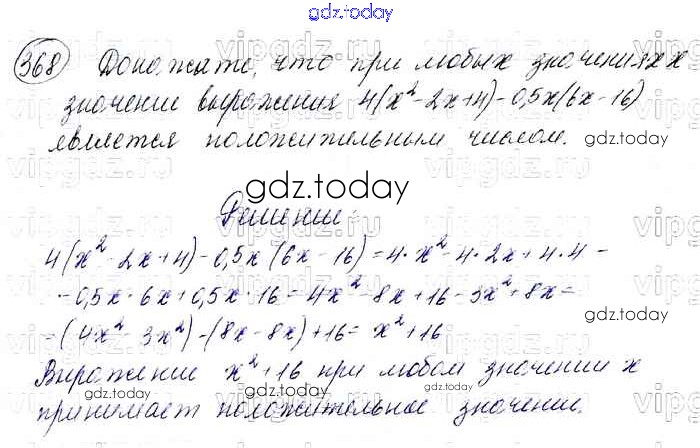 gdz.today
368 Докажите, что при любых значениях x
значение выражения 4(x² - 2x + 4) - 0,5x(6x - 16)
является положительным числом. gdz.today
gdz.today
Решение:
4(x² - 2x + 4) - 0,5x (6x - 16) = 4 · x² - 4 · 2x + 4 · 4 -
- 0,5x · 6x + 0,5x · 16 = 4x² - 8x + 16 - 3x² + 8x =
= (4x² - 3x²) - (8x - 8x) + 16 = x² + 16
gdz.today
Выражение x² + 16 при любом значении x
gdz.today
принимает положительное значение.